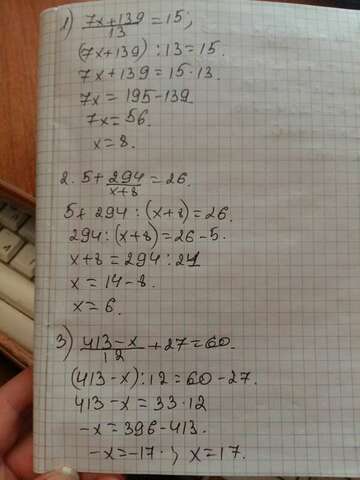 1) (7x+139)/13 = 15;
(7x+139) : 13 = 15.
7x+139 = 15·13.
7x = 195-139
7x = 56.
x = 8.
2. 5+294/(x+8) = 26.
5+ 294 : (x+8) = 26.
294 : (x+8) = 26-5.
x+8 = 294 : 21
x = 14-8.
x = 6.
3) (413-x)/12 + 27 = 60.
(413-x) : 12 = 60-27.
413-x = 33·12
-x = 396-413.
-x = -17. ; x = 17.